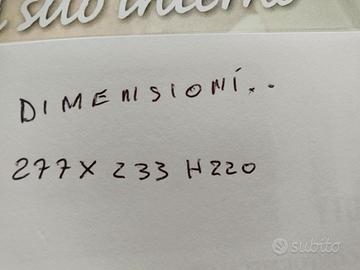 suo interno
DIMENSIONI..
277X 233 H220
subito